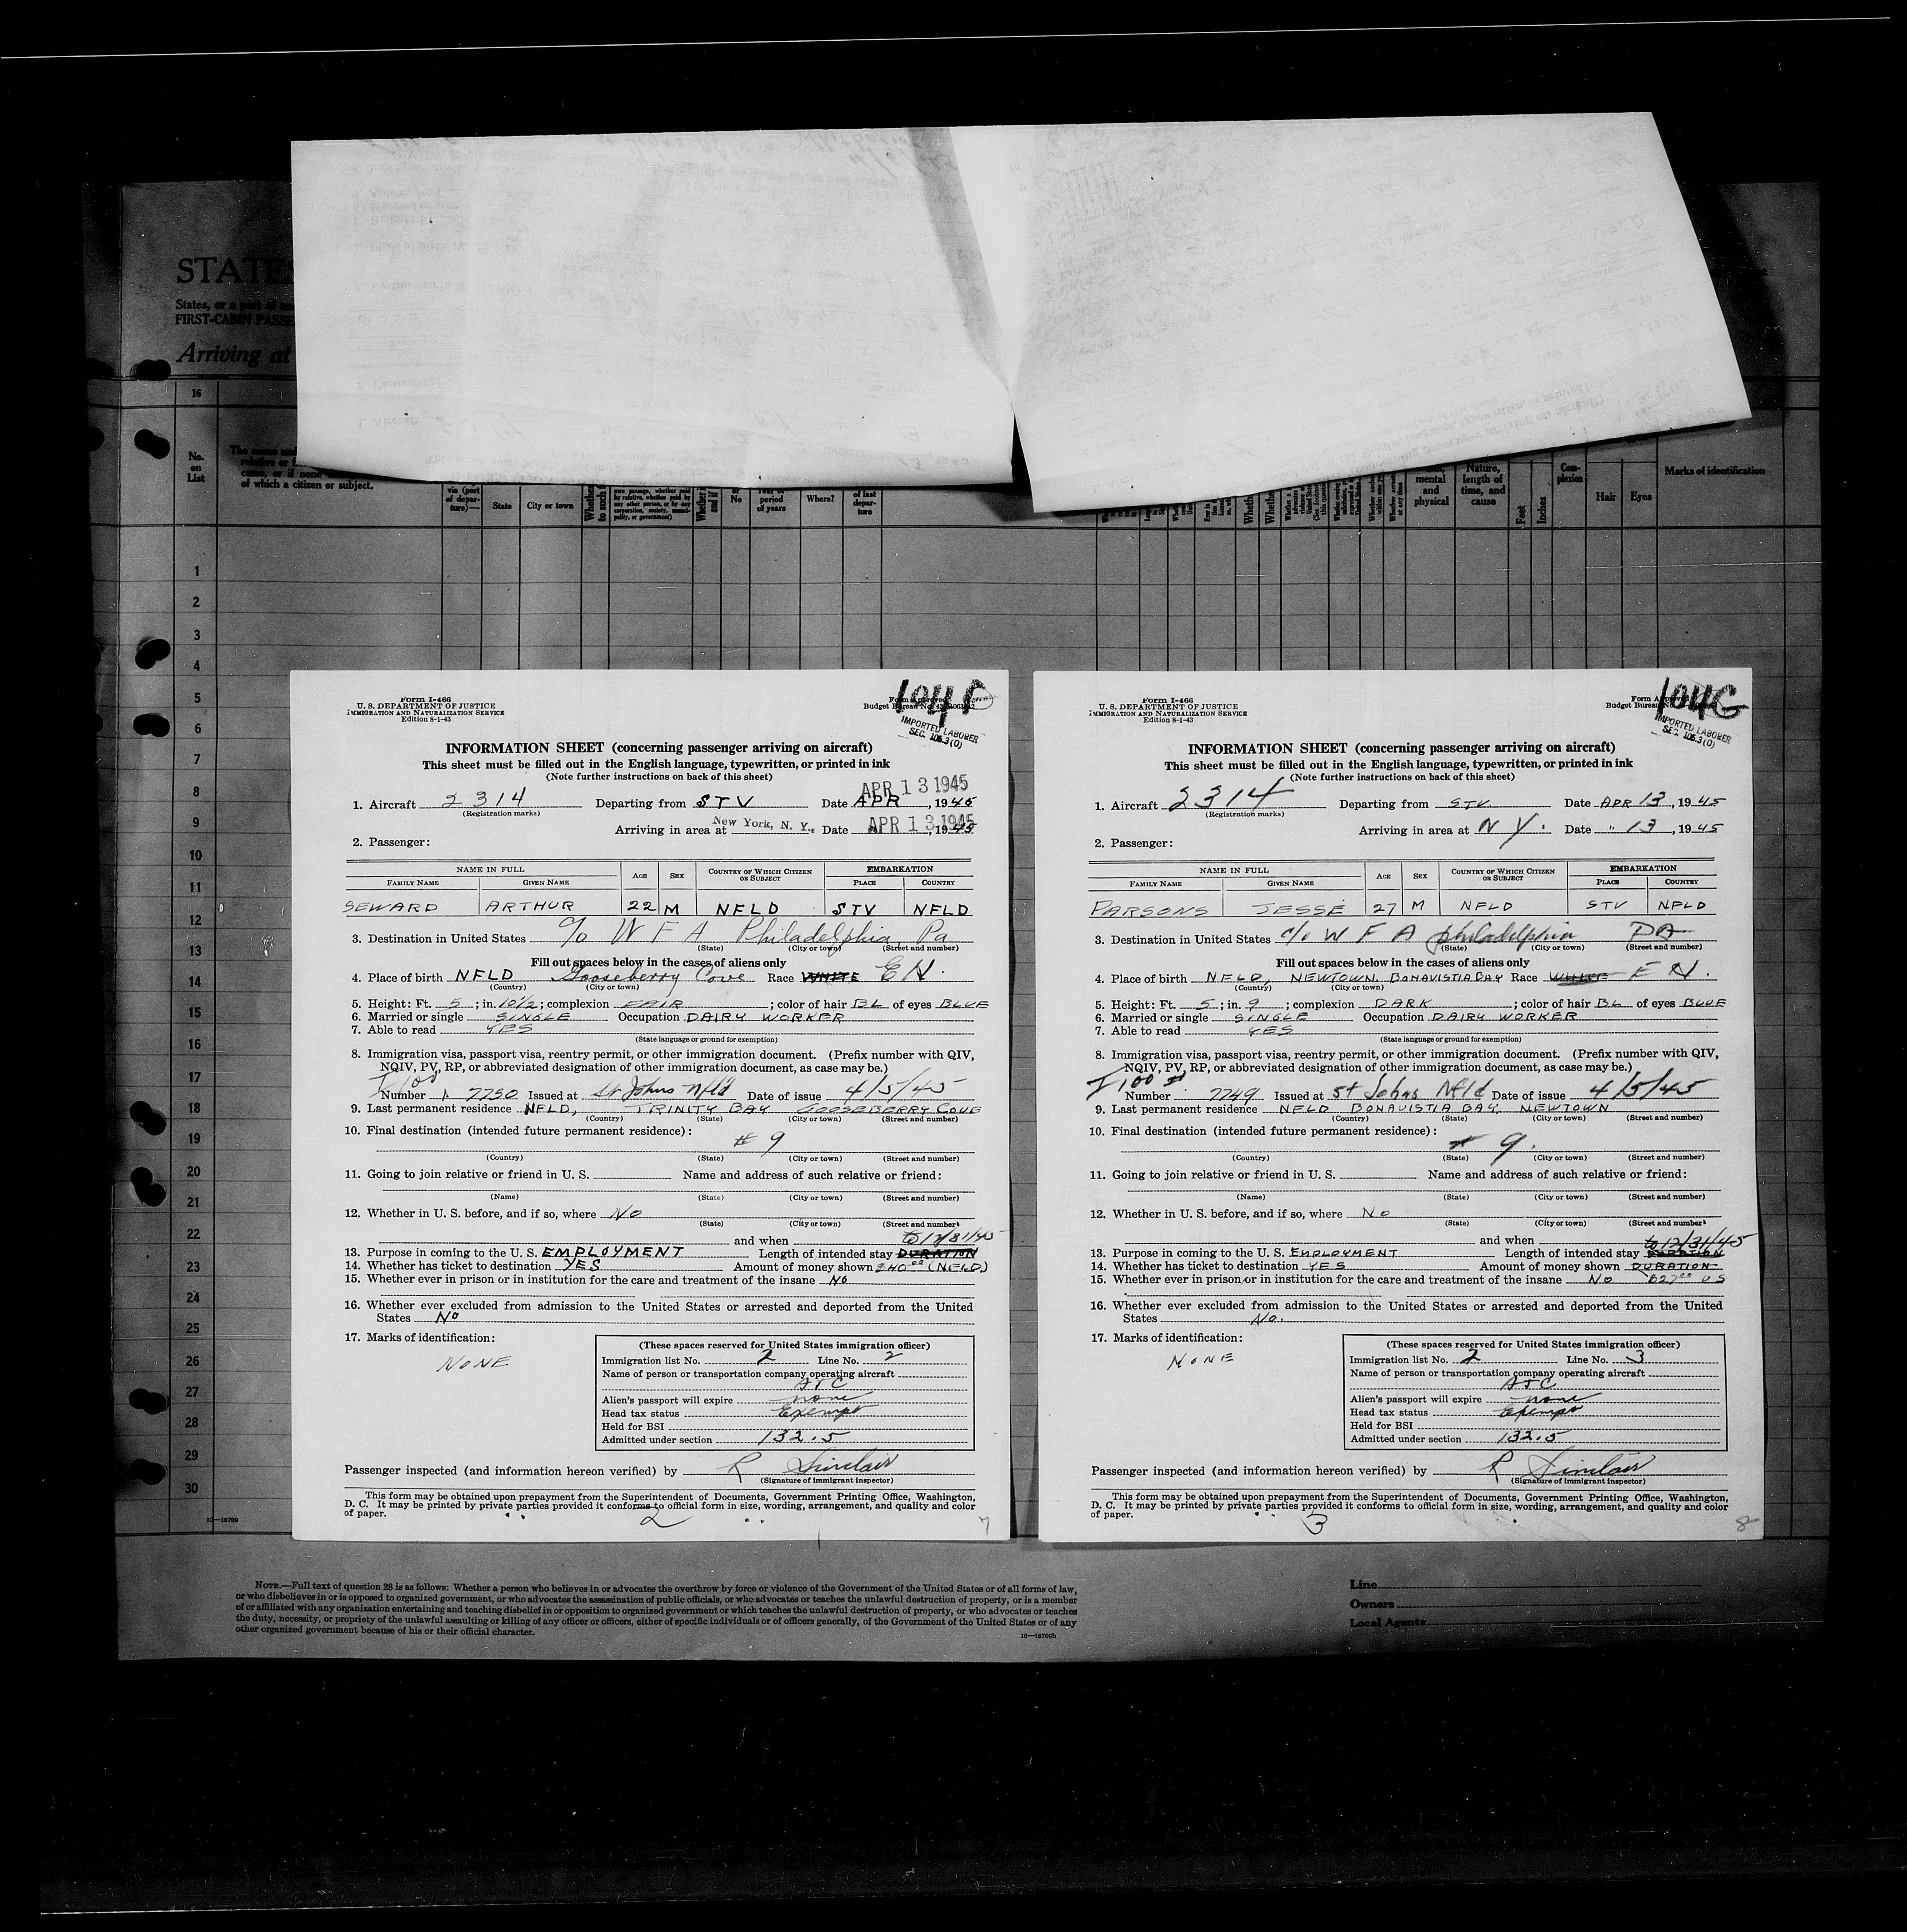 STATES
States, or a part of
FIRST-CABIN PASSE
Arriving at
16
No. on List
of which a citizen or subject.
via (port of departure)—
State
City or town
Where?
of last departure
mental and physical
Nature, length of time, and cause
Feet
Inches
Complexion
Hair
Eyes
Marks of identification
1
2
3
4
5
6
7
8
9
10
11
12
13
14
15
16
17
18
19
20
21
22
23
24
25
26
27
28
29
30
16—18709
Form I-466
U. S. DEPARTMENT OF JUSTICE
IMMIGRATION AND NATURALIZATION SERVICE
Edition 8-1-43
104F
IMPORTED LABORER
SEC. 106.3(0)
INFORMATION SHEET (concerning passenger arriving on aircraft)
This sheet must be filled out in the English language, typewritten, or printed in ink
(Note further instructions on back of this sheet)
APR 13 1945
1. Aircraft 2314 Departing from STV Date APR , 1945
(Registration marks)
Arriving in area at New York, N. Y. Date APR 13 1945
2. Passenger:
NAME IN FULL AGE SEX COUNTRY OF WHICH CITIZEN OR SUBJECT EMBARKATION
FAMILY NAME GIVEN NAME PLACE COUNTRY
SEWARD ARTHUR 22 M NFLD STV NFLD
3. Destination in United States c/o W F A Philadelphia Pa
(State) (City or town) (Street and number)
Fill out spaces below in the cases of aliens only
4. Place of birth NFLD Gooseberry Cove Race WHITE EN.
(Country) (City or town)
5. Height: Ft. 5 ; in. 10 1/2 ; complexion FAIR ; color of hair BL of eyes BLUE
6. Married or single SINGLE Occupation DAIRY WORKER
7. Able to read YES
(State language or ground for exemption)
8. Immigration visa, passport visa, reentry permit, or other immigration document. (Prefix number with QIV,
NQIV, PV, RP, or abbreviated designation of other immigration document, as case may be.)
I 100
Number 7750 Issued at St Johns Nfld Date of issue 4/5/45
9. Last permanent residence NFLD, TRINITY BAY GOOSEBERRY COVE
(Country) (State) (City or town) (Street and number)
10. Final destination (intended future permanent residence):
# 9
(Country) (State) (City or town) (Street and number)
11. Going to join relative or friend in U. S. Name and address of such relative or friend:
(Name) (State) (City or town) (Street and number)
12. Whether in U. S. before, and if so, where No
(State) (City or town) (Street and number)
and when to 12/31/45
13. Purpose in coming to the U. S. EMPLOYMENT Length of intended stay DURATION
14. Whether has ticket to destination YES Amount of money shown $40.00 (NFLD)
15. Whether ever in prison or in institution for the care and treatment of the insane No
16. Whether ever excluded from admission to the United States or arrested and deported from the United
States No
17. Marks of identification:
NONE
(These spaces reserved for United States immigration officer)
Immigration list No. 2 Line No. 2
Name of person or transportation company operating aircraft
ATC
Alien's passport will expire none
Head tax status Exempt
Held for BSI
Admitted under section 132.5
Passenger inspected (and information hereon verified) by R Sinclair
(Signature of immigrant inspector)
This form may be obtained upon prepayment from the Superintendent of Documents, Government Printing Office, Washington,
D. C. It may be printed by private parties provided it conforms to official form in size, wording, arrangement, and quality and color
of paper.
2
7
Form I-466
U. S. DEPARTMENT OF JUSTICE
IMMIGRATION AND NATURALIZATION SERVICE
Edition 8-1-43
104G
IMPORTED LABORER
SEC. 106.3(0)
INFORMATION SHEET (concerning passenger arriving on aircraft)
This sheet must be filled out in the English language, typewritten, or printed in ink
(Note further instructions on back of this sheet)
1. Aircraft 2314 Departing from STV Date APR 13, 1945
(Registration marks)
Arriving in area at N Y. Date " 13, 1945
2. Passenger:
NAME IN FULL AGE SEX COUNTRY OF WHICH CITIZEN OR SUBJECT EMBARKATION
FAMILY NAME GIVEN NAME PLACE COUNTRY
PARSONS JESSE 27 M NFLD STV NFLD
3. Destination in United States c/o W F A philadelphia PA
(State) (City or town) (Street and number)
Fill out spaces below in the cases of aliens only
4. Place of birth NFLD, NEWTOWN, BONAVISTA BAY Race WHITE EN.
(Country) (City or town)
5. Height: Ft. 5 ; in. 9 ; complexion DARK ; color of hair BL of eyes BLUE
6. Married or single SINGLE Occupation DAIRY WORKER
7. Able to read YES
(State language or ground for exemption)
8. Immigration visa, passport visa, reentry permit, or other immigration document. (Prefix number with QIV,
NQIV, PV, RP, or abbreviated designation of other immigration document, as case may be.)
I 100
Number 7749 Issued at St Johns Nfld Date of issue 4/5/45
9. Last permanent residence NFLD BONAVISTA BAY, NEWTOWN
(Country) (State) (City or town) (Street and number)
10. Final destination (intended future permanent residence):
# 9.
(Country) (State) (City or town) (Street and number)
11. Going to join relative or friend in U. S. Name and address of such relative or friend:
(Name) (State) (City or town) (Street and number)
12. Whether in U. S. before, and if so, where No
(State) (City or town) (Street and number)
and when to 12/31/45
13. Purpose in coming to the U. S. EMPLOYMENT Length of intended stay DURATION
14. Whether has ticket to destination YES Amount of money shown DURATION
15. Whether ever in prison or in institution for the care and treatment of the insane No $27.00 US
16. Whether ever excluded from admission to the United States or arrested and deported from the United
States No.
17. Marks of identification:
NONE
(These spaces reserved for United States immigration officer)
Immigration list No. 2 Line No. 3
Name of person or transportation company operating aircraft
ATC
Alien's passport will expire none
Head tax status Exempt
Held for BSI
Admitted under section 132.5
Passenger inspected (and information hereon verified) by R Sinclair
(Signature of immigrant inspector)
This form may be obtained upon prepayment from the Superintendent of Documents, Government Printing Office, Washington,
D. C. It may be printed by private parties provided it conforms to official form in size, wording, arrangement, and quality and color
of paper.
3
8
NOTE.—Full text of question 28 is as follows: Whether a person who believes in or advocates the overthrow by force or violence of the Government of the United States or of all forms of law,
or who disbelieves in or is opposed to organized government, or who advocates the assassination of public officials, or who advocates or teaches the unlawful destruction of property, or is a member
of or affiliated with any organization entertaining and teaching disbelief in or opposition to organized government or which teaches the unlawful destruction of property, or who advocates or teaches
the duty, necessity, or propriety of the unlawful assaulting or killing of any officer or officers, either of specific individuals or of officers generally, of the Government of the United States or of any
other organized government because of his or their official character.
16—18709b
Line
Owners
Local Agents